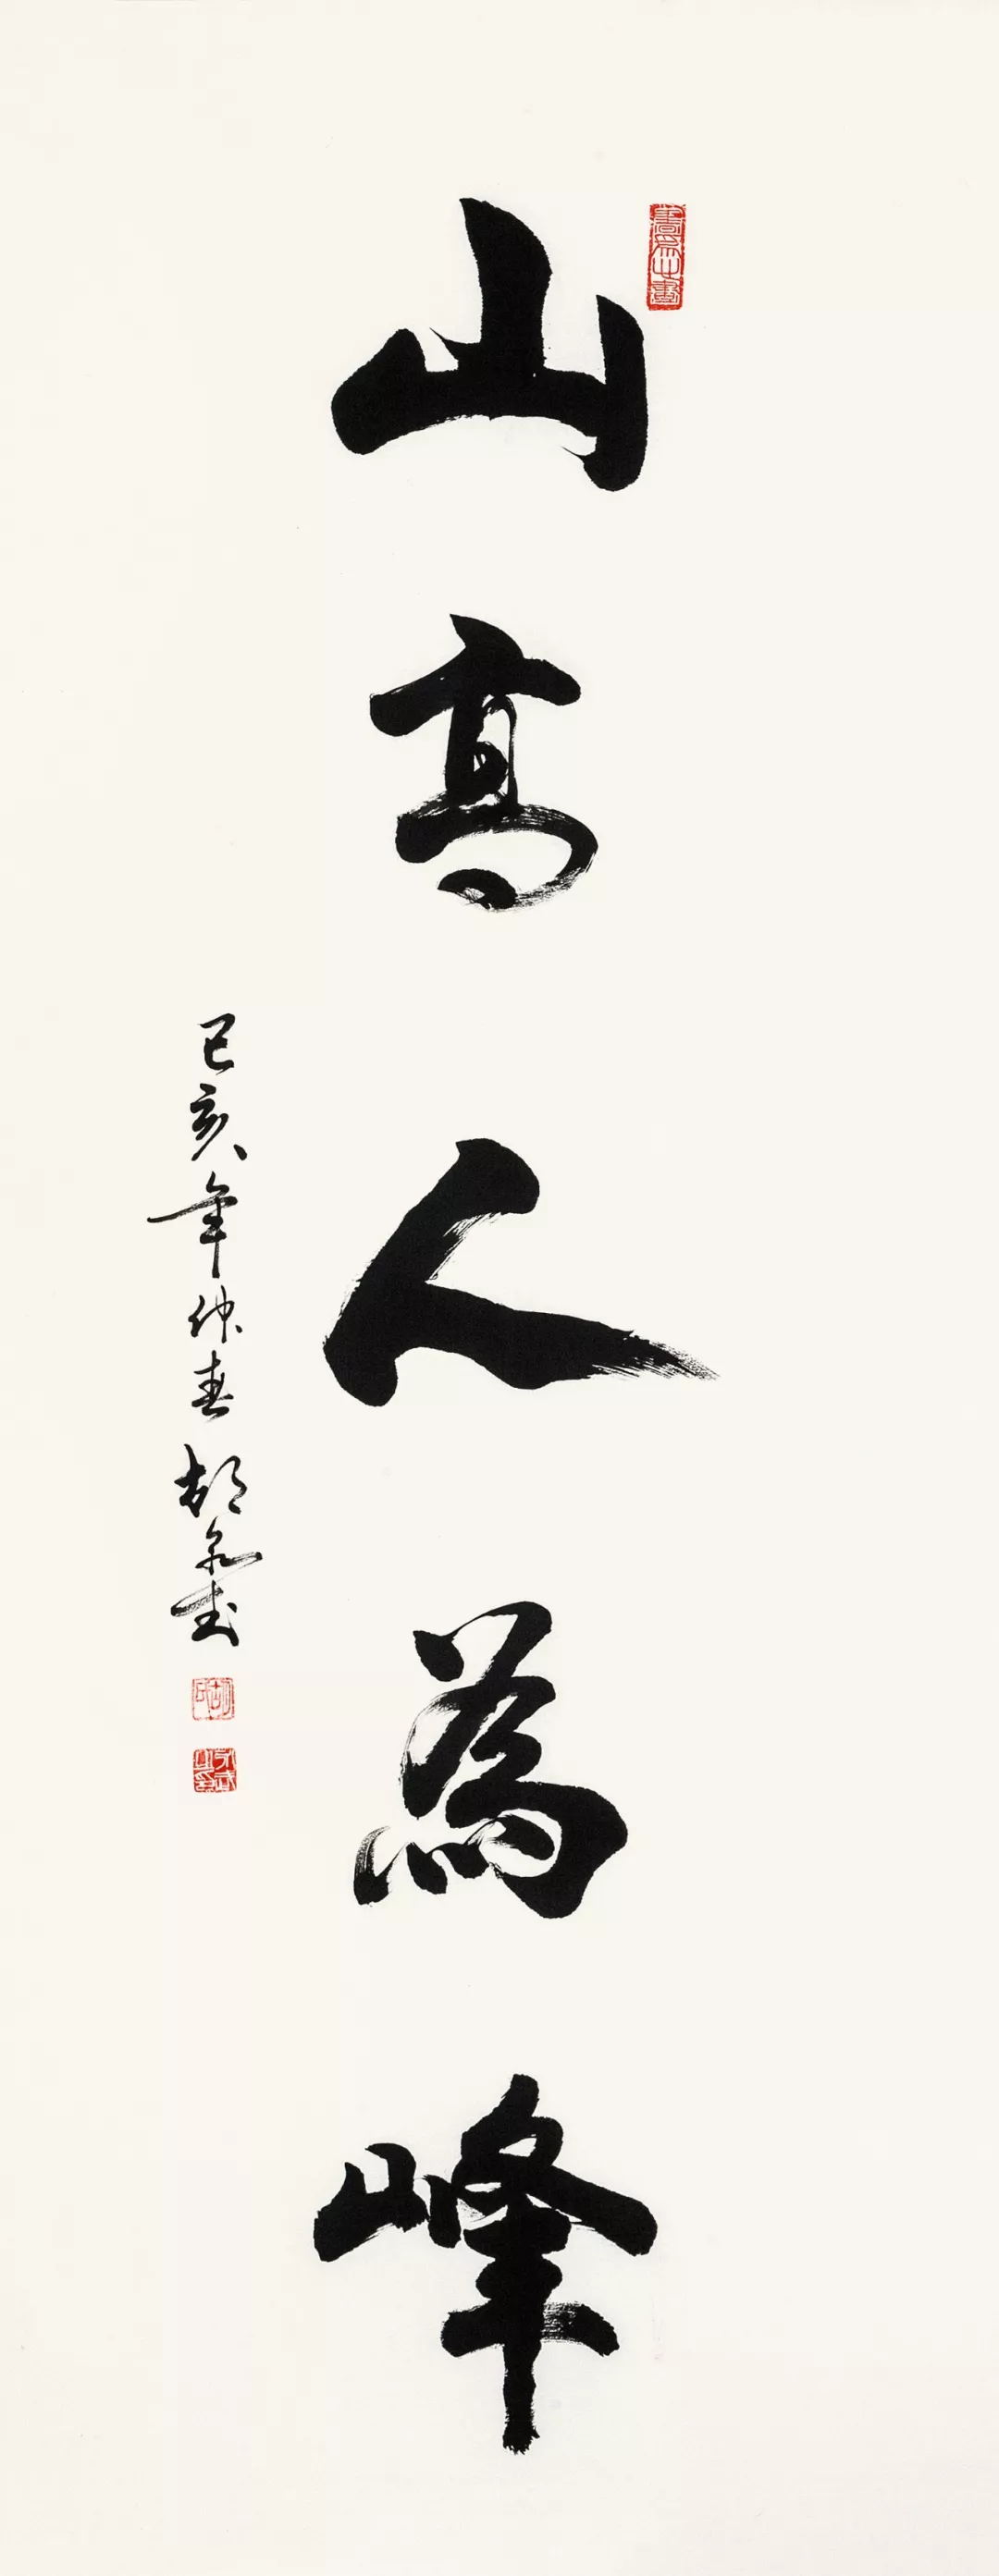 山高人為峰
己亥年仲春 胡永武